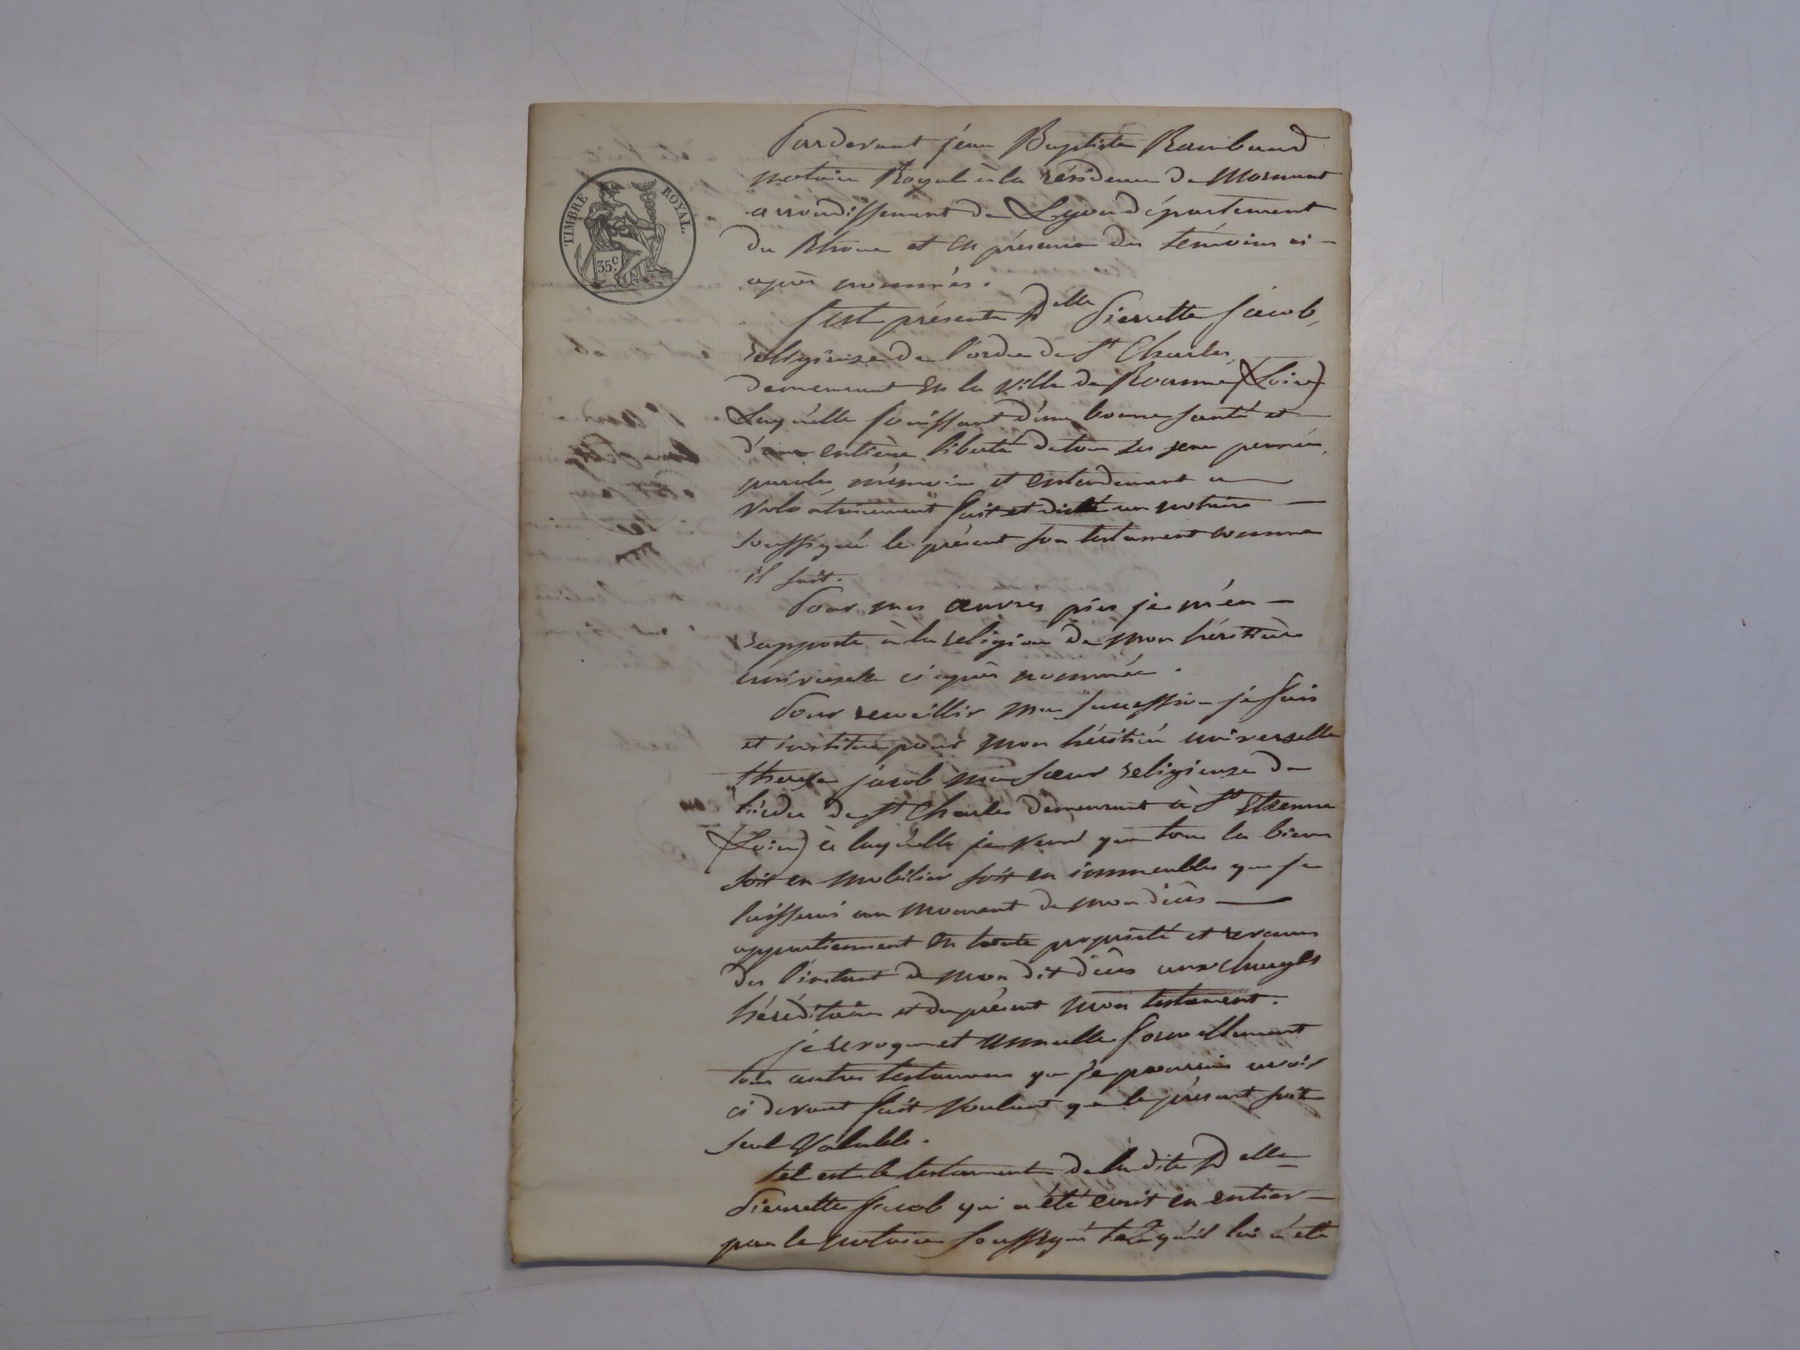 TIMBRE ROYAL.
35.c
Pardevant jean Baptiste Raimbaud
notaire Royal à la résidence de Mornant
arrondissement de Lyon département
du Rhone et en présence des témoins ci-
après nommés.
S'est présenté Delle Pierrette Jacob,
religieuse de l'ordre de St Charles,
demeurant en la ville de Roanne (Loire)
Laquelle jouissant d'une bonne santé et
d'une entière liberté de tous ses sens pensée,
paroles, mémoire et entendement a
volontairement fait et dicté au notaire
soussigné le présent son testament comme
il suit.
Pour mes œuvres pies je m'en
rapporte à la religion de mon héritière
universelle ci après nommée.
Pour recueillir ma succession je fais
et institue pour mon héritière universelle
therese jacob ma sœur religieuse de
l'ordre de St Charles demeurant à St Etienne
(Loire) à laquelle je veux que tous les biens
soit en mobilier soit en immeubles que je
laisserai au moment de mon décès
appartiennent en toute propriété et revenus
des l'instant de mon dit décès aux charges
héréditaires et du présent mon testament.
je revoque et annulle formellement
tous autres testamens que je pourrais avoir
ci devant fait voulant que le présent soit
seul valable.
tel est le testament de la dite Delle
Pierrette Jacob qui a été écrit en entier
par le notaire soussigné tel qu'il lui a été